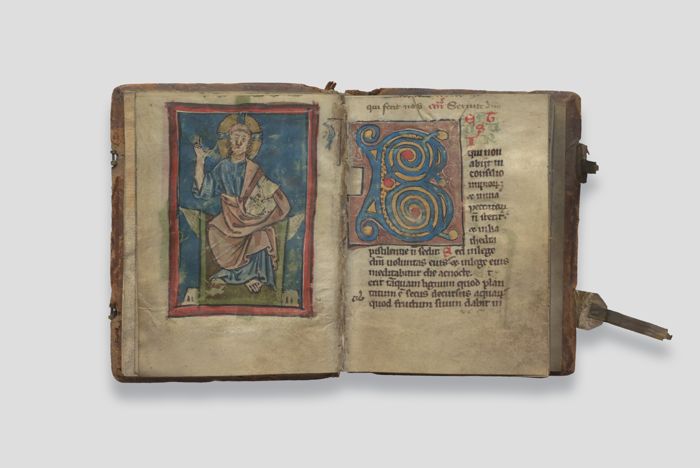 qui fecit nos
B
qui non
abijt in
consilio
impior
& in uia
peccator
n stetit
& in ka
thedra
pestilentie n sedit Sed in lege
dni uoluntas eius & in lege eius
meditabitur die ac nocte
erit tamquam lignum quod plan
tatum e secus decursus aquar
quod fructum suum dabit in